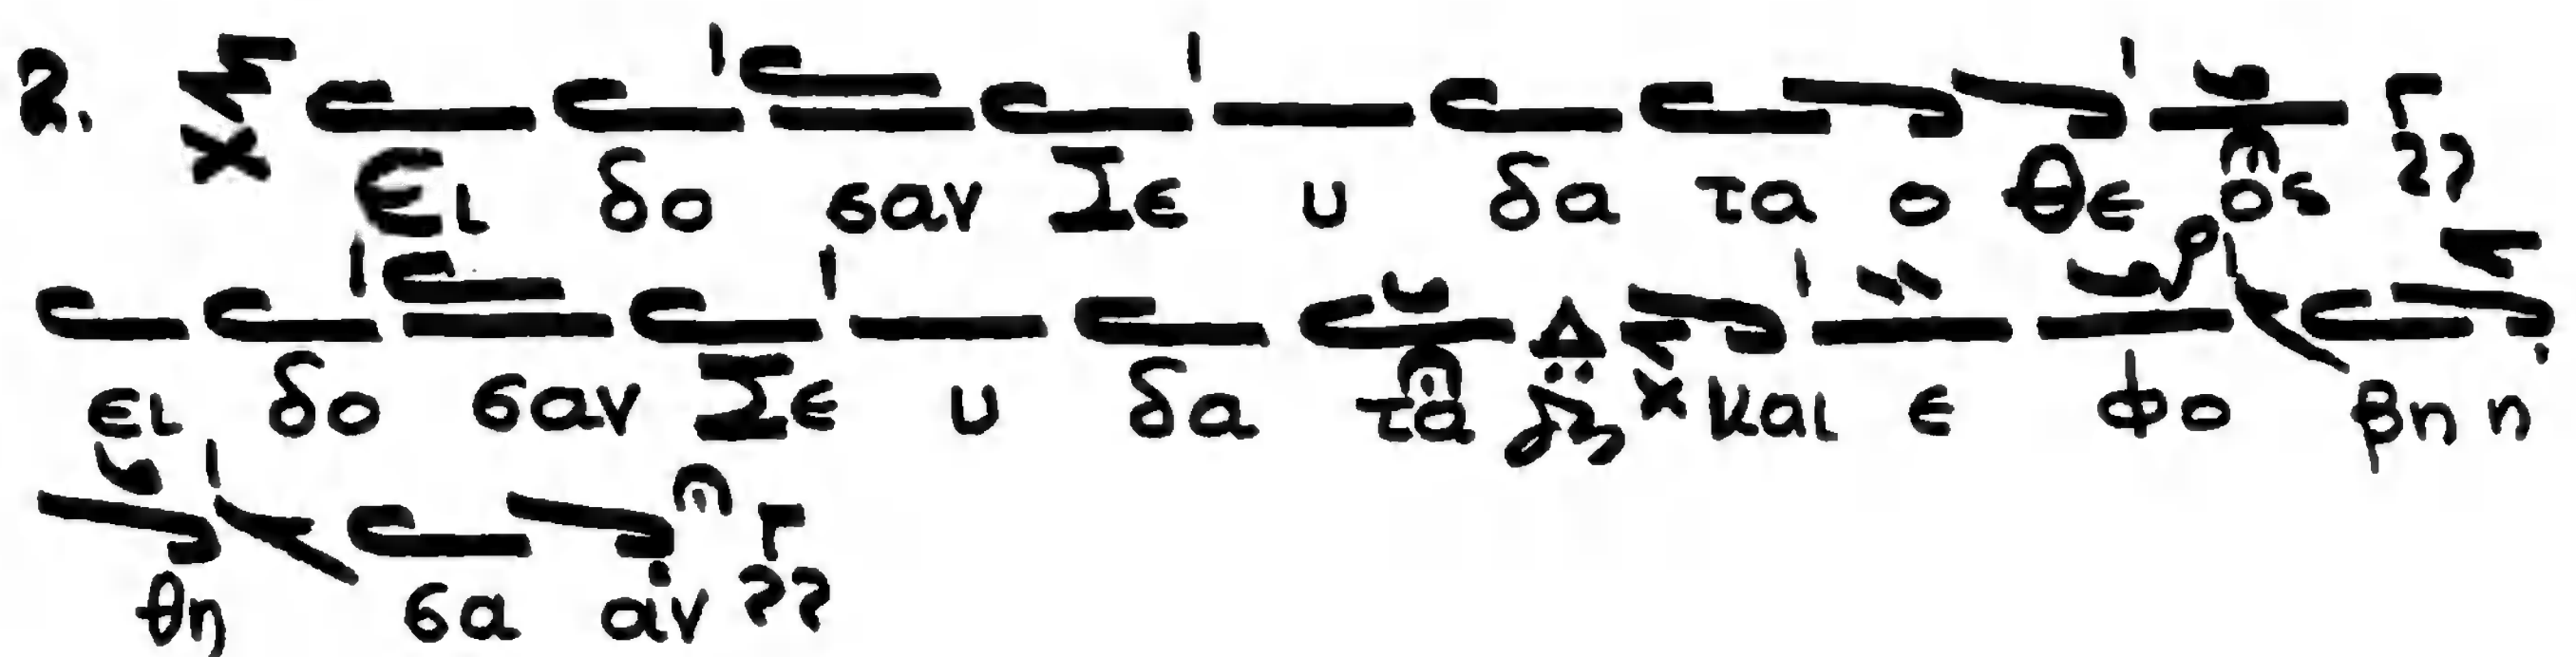 2. Ει δο σαν Σε υ δα τα ο Θε ος
ει δο σαν Σε υ δα τα και ε φο βη η
θη σα αν